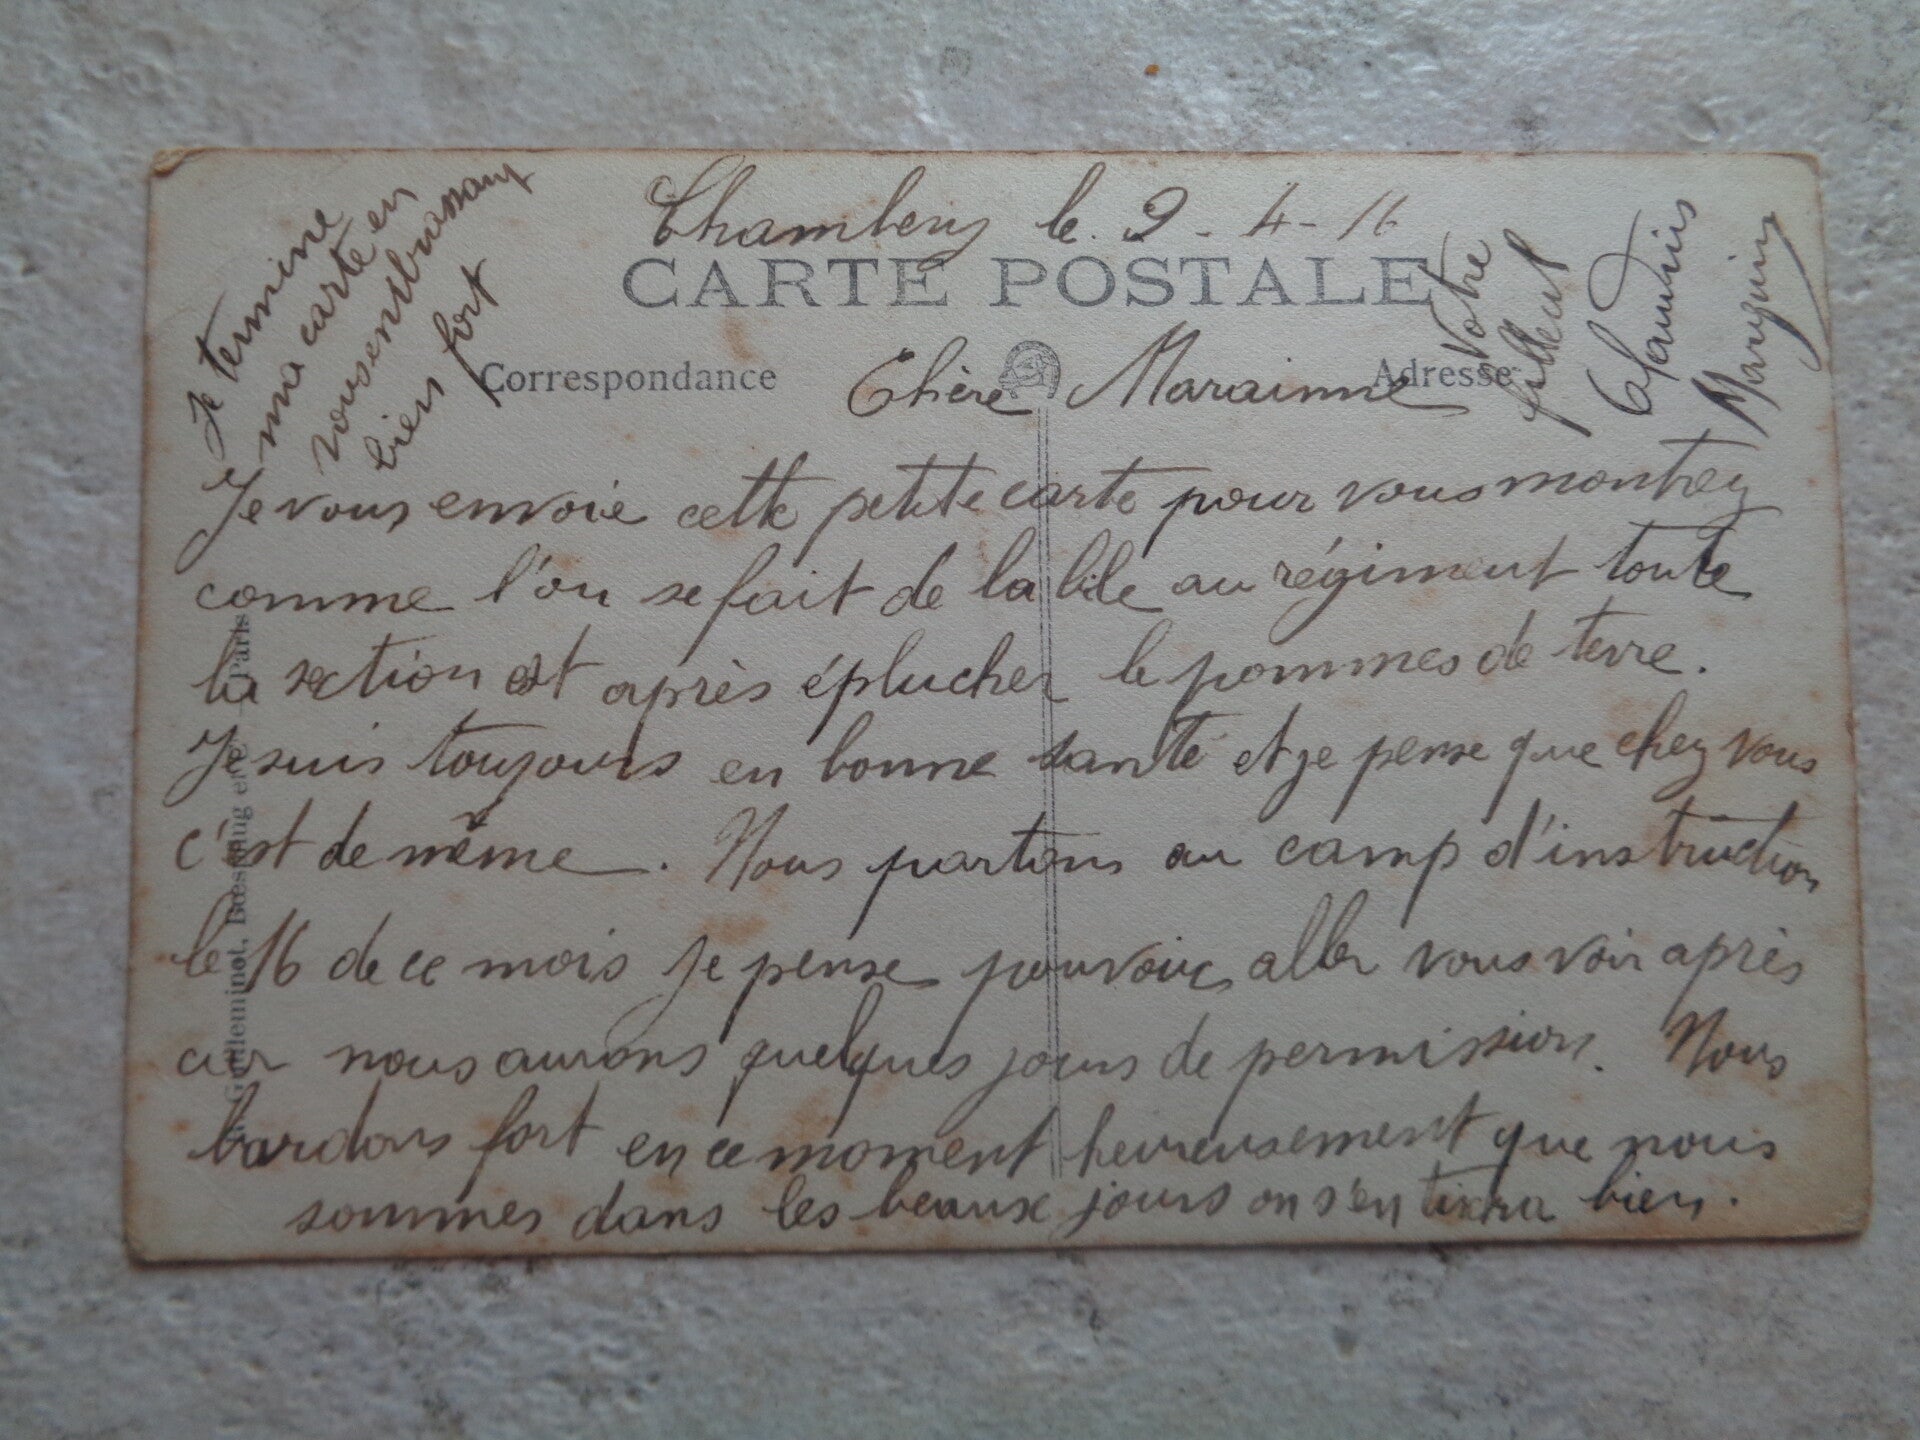 Chambery le 2-4-16
CARTE POSTALE
Correspondance
Adresse
Chère Marainne
Je vous envoie cette petite carte pour vous montrez
comme l'on se fait de la bile au régiment toute
la section est après éplucher le pommes de terre.
Je suis toujours en bonne santé et je pense que chez vous
c'est de même. Nous partons au camp d'instruction
le 16 de ce mois je pense pouvoir aller vous voir après
car nous aurons quelques jours de permission. Nous
bardons fort en ce moment heureusement que nous
sommes dans les beaux jours on s'en tirera bien.
Je termine
ma carte en
vous embrassant
bien fort
Votre
filleul
Claudius
Mangin
Guilleminot, Boespflug et Cie - Paris